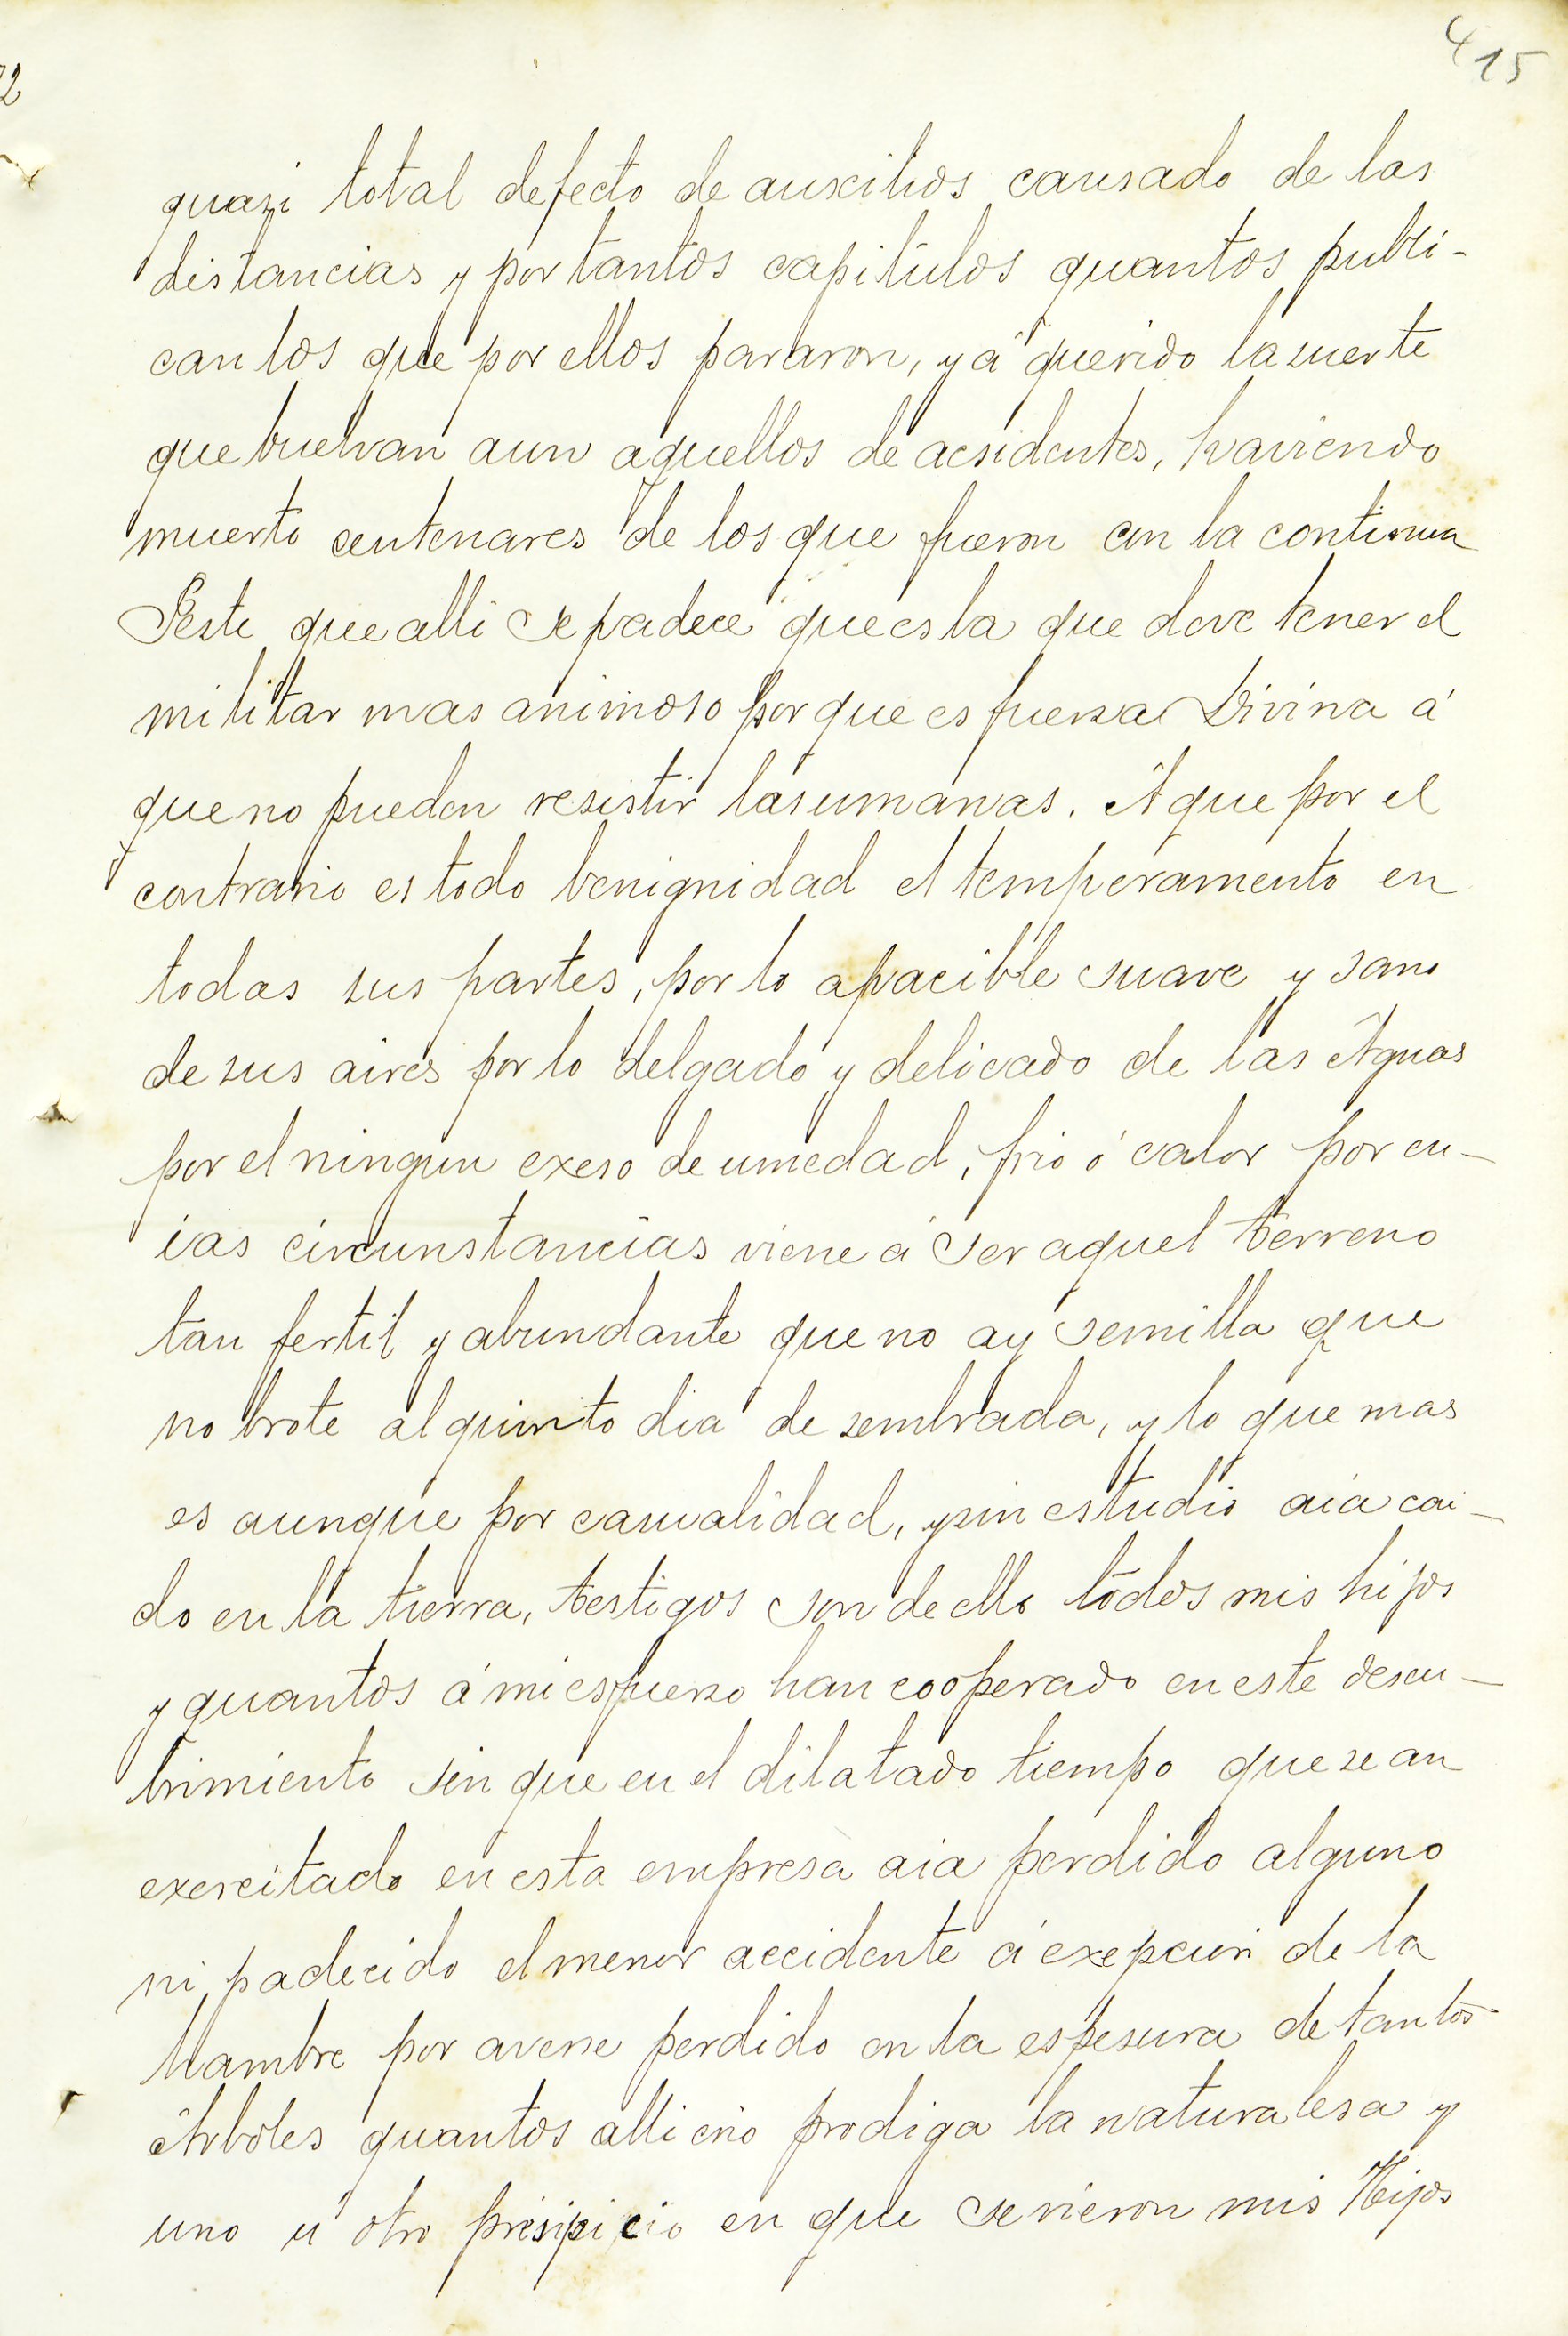 415
quasi total defecto de auxcilios causado de las
distancias y por tantos capitulos quantos publi-
can los que por ellos pararon, y á querido la suerte
que buelvan aun aquellos de acsidentes, haviendo
muerto centenares de los que fueron con la continua
Peste que alli se padece que es la que deve tener el
militar mas animoso por que es fuersa Divina á
que no pueden resistir las umanas. A que por el
contrario es todo benignidad el temperamento en
todas sus partes, por lo apacible suave y sano
de sus aires por lo delgado y delicado de las Aguas
por el ningun exeso de umedad, frio ó calor por cu-
ias circunstancias viene á ser aquel terreno
tan fertil y abundante que no ay semilla que
no brote al quinto dia de sembrada, y lo que mas
es aunque por casualidad, y sin estudio aia cai-
do en la tierra, testigos son de ello todos mis hijos
y quantos á mi esfuerso han cooperado en este descu-
brimiento sin que en el dilatado tiempo que se an
exercitado en esta empresa aia perdido alguno
ni padecido el menor accidente á exepcion de la
hambre por averse perdido en la espesura de tantos
Arboles quantos alli crio prodiga la naturalesa y
uno ú otro presipicio en que se vieron mis Hijos